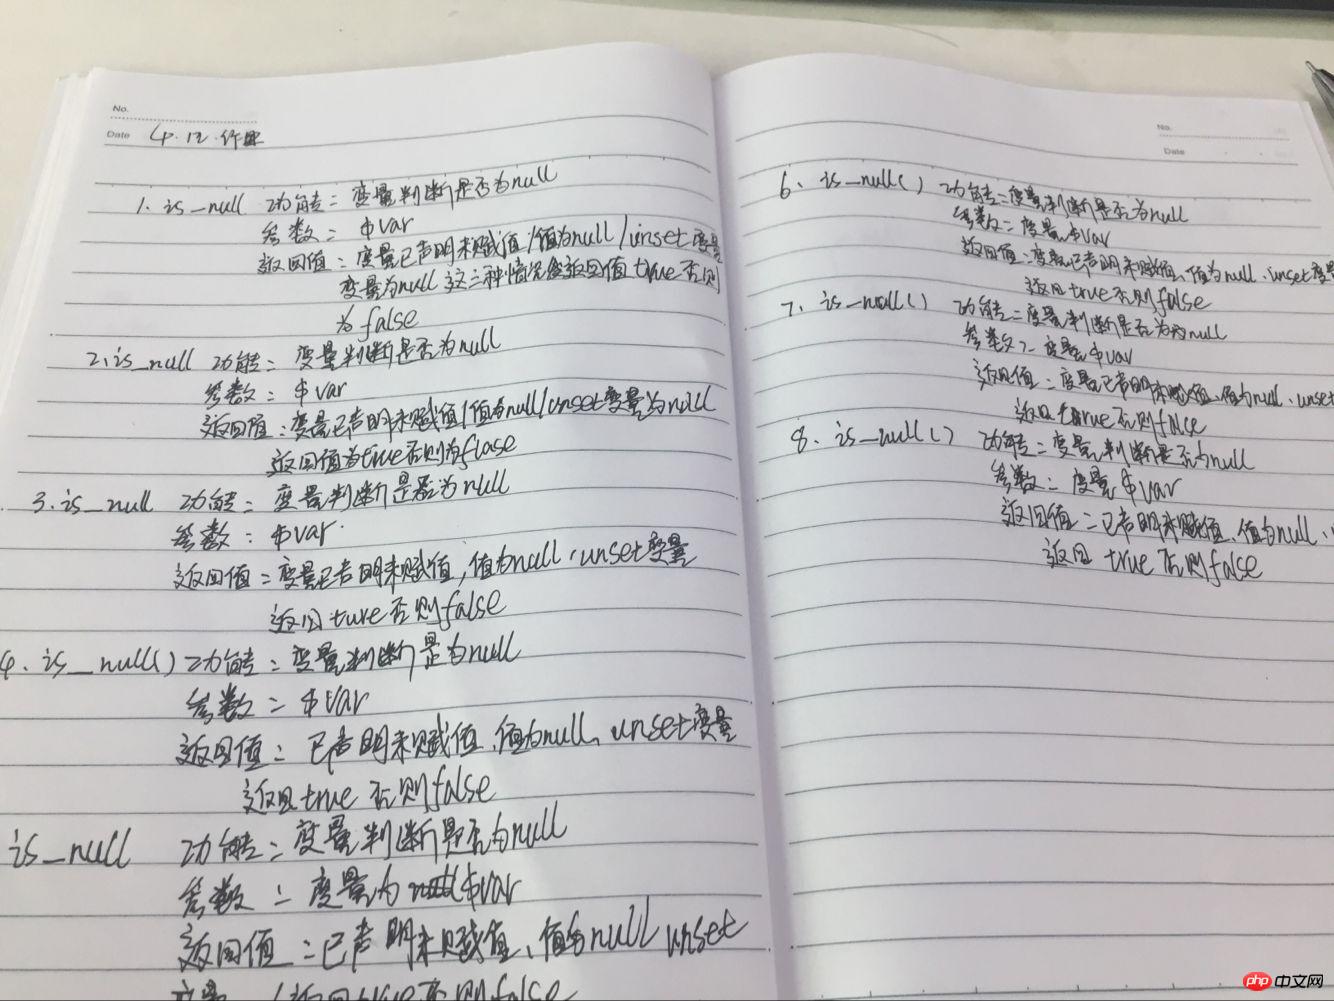 No.
Date 4.12.作业
1. is_null 功能：变量判断是否为null
参数：$var
返回值：变量已声明未赋值/值为null/unset变量
变量为null 这三种情况会返回值true否则
为false
2. is_null 功能：变量判断是否为null
参数：$var
返回值：变量已声明未赋值/值为null/unset变量为null
返回值为true否则为flase
3. is_null 功能：变量判断是否为null
参数：$var.
返回值：变量已声明未赋值，值为null、unset变量
返回ture否则false
4. is_null() 功能：变量判断是为null
参数：$var
返回值：已声明未赋值、值为null、unset变量
返回true 否则false
is_null 功能：变量判断是否为null
参数：变量为$var
返回值：已声明未赋值、值为null unset
变量 返回true否则false
No.
Date
6. is_null() 功能：变量判断是否为null
参数：变量$var
返回值：变量已声明未赋值、值为null、unset变
返回true否则false
7. is_null() 功能：变量判断是否为null
参数：变量$var
返回值：变量已声明未赋值、值为null、unset
返回true否则false
8. is_null() 功能：变量判断是否为null
参数：变量$var
返回值：已声明未赋值、值为null、
返回 true 否则false
php中文网